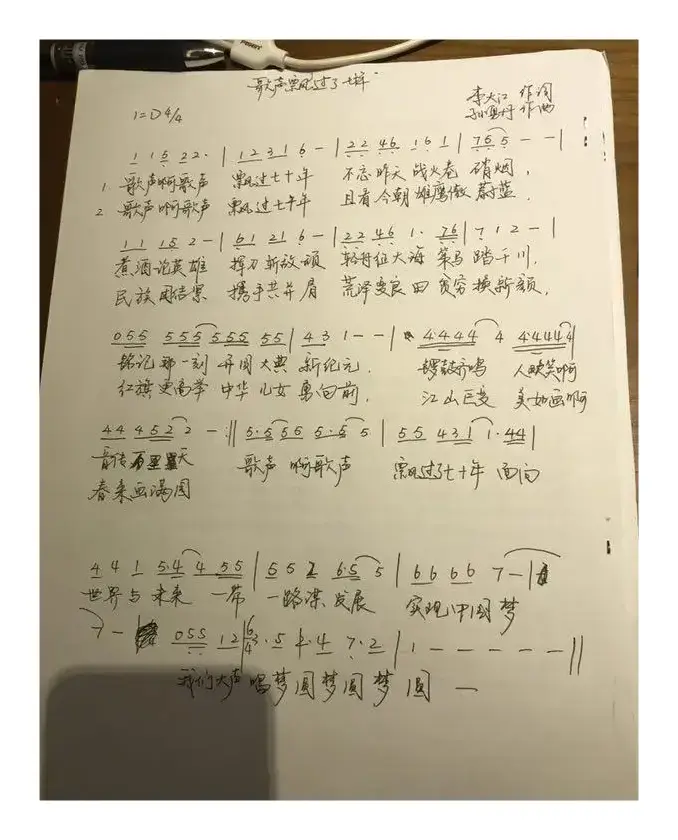 歌声飘过了七十年
李大江 作词
作曲
1=D 4/4
1 1 1 5 2 2 · | 1 2 3 1 6 - | 2 2 4 6 1 6 1 | 7 6 5 - - |
1. 歌声啊歌声 飘过七十年 不忘昨天 战火卷 硝烟,
2 歌声啊歌声 飘过七十年 且看今朝 雄鹰傲 蔚蓝.
1 1 1 5 2 - | 6 1 2 1 6 - | 2 2 4 6 1 · 7 6 | 7 1 2 - |
煮酒论英雄 挥刀斩敌顽 轻舟征大海 策马踏千川,
民族团结紧 携手共并肩 荒泽变良田 贫穷换新颜,
0 5 5 5 5 5 5 5 5 5 5 | 4 3 1 - - | 4·4 4 4 4 4·4 4 4 4 |
铭记那一刻 开国大典 新纪元. 锣鼓齐鸣 人欢笑啊
红旗更高举 中华儿女 勇向前, 江山巨变 美如画啊
4 4 4 5 2 2 - :|| 5·5 5 5 5·5 5 | 5 5 4 3 1 1·4 4 |
歌传 天 歌声 啊歌声 飘过了七十年 面向
春来画满园
4 4 1 5·4 4 5 5 | 5 5 2 6·5 5 | 6 6 6 6 7 - |
世界与 未来 一带 一路谋发展 实现中国梦
7 - 0 5 5 1 2 | 6/4 3·5 2·4 7·2 | 1 - - - - - ||
我们大声 唱梦圆梦圆梦 圆 —